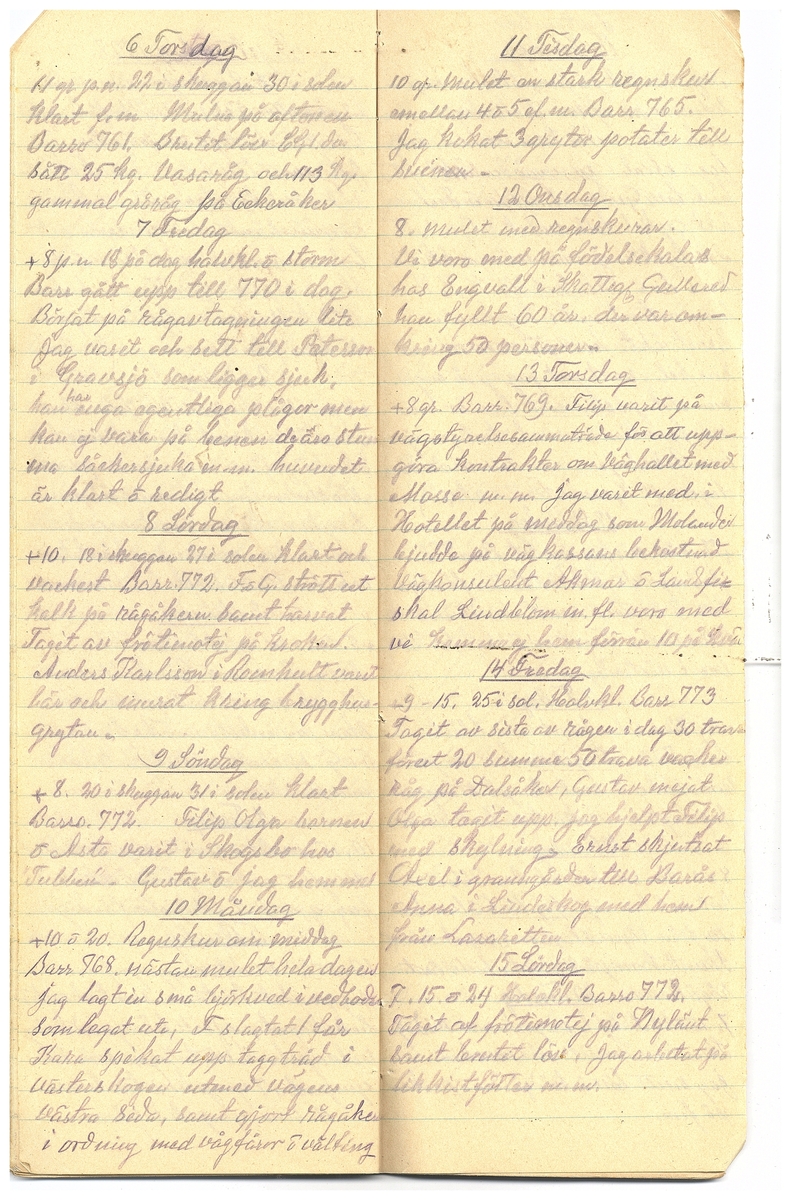 6 Torsdag
11 gr. p.n. 22 i skuggan 30 i solen
klart f.m. Mulna på aftonen
Barro 761. Brutet löv
sått 25 kg. Vasaråg och 113 kg.
gammal gråråg på Eckeråker
7 Fredag
+8 p.n 18 på dag halvkl. o storm
Barr gått upp till 770 i dag.
Börjat på rågavtagningen lite
Jag varit och sett till Peterson
i Gravsjö som ligger sjuk,
han har inga egentliga plågor men
kan ej vara på benen de äro stum
ma såckersjuka m.m. huvudet
är klart o redigt
8 Lördag
+10. 18 i skuggan 27 i solen klart och
vackert Barr. 772. F. o G. strött ut
kalk på rågåkern samt harvat
Taget av frötimotej på kroken.
Anders Karlsson i Romhult varit
här och murat kring brygghus-
grytan.
9 Söndag
+8. 20 i skuggan 31 i solen klart
Barro. 772. Filip Olga barnen
o Asta varit i Skogsbo hos
Gustav o Jag hemma
10 Måndag
+10 o 20. Regnskur om middag
Barr 768. nästan mulet hela dagen
jag lagt in små björkved i vedboden
som legat ute, F slagtat 1 får
Kara spikat upp taggtråd i
västerskogen utmed vägens
västra sida, samt gjort rågåker
i ordning med vågfåror o vältning
11 Tisdag
10 gr. Mulet en stark regnskur
emellan 4 o 5 ef.m. Barr 765.
Jag kokat 3 grytor potater till
svinen.
12 Onsdag
8. mulet med regnskurar.
Vi voro med på födelsekalas
hos Engvall i Skatteg. Gullered
han fyllt 60 år. der var om-
kring 50 personer.
13 Torsdag
+8 gr. Barr. 769. Filip varit på
vägstyrelsesammaträde för att upp-
göra kontrakter om väghållet med
Masse m.m. Jag varit med i
Hotellet på meddag som Molander
bjudda på vägkassans bekostnad
Vägkonsulent Akmar o Landsfis
skal Lindblom m.fl. voro med
vi kommo ej hem förrän 10 på
14 Fredag
+9 - 15. 25 i sol. Halvkl. Barr 773
Tagit av sista av rågen i dag 30 travar
förut 20 summa 50 trava vacker
råg på Dalsåker, Gustav mejat
Olga taget upp. jag hjelpt Filip
med skylning. Ernst skjutsat
Axel i granngården till Borås
Anna i Linderkog med hem
från Lazarettet
15 Lördag
7. 15 o 24 Halvkl. Barro 772.
Tagit af frötimotej på Nyland
samt brutet löv. Jag arbetat på
likkistfötter m.m.